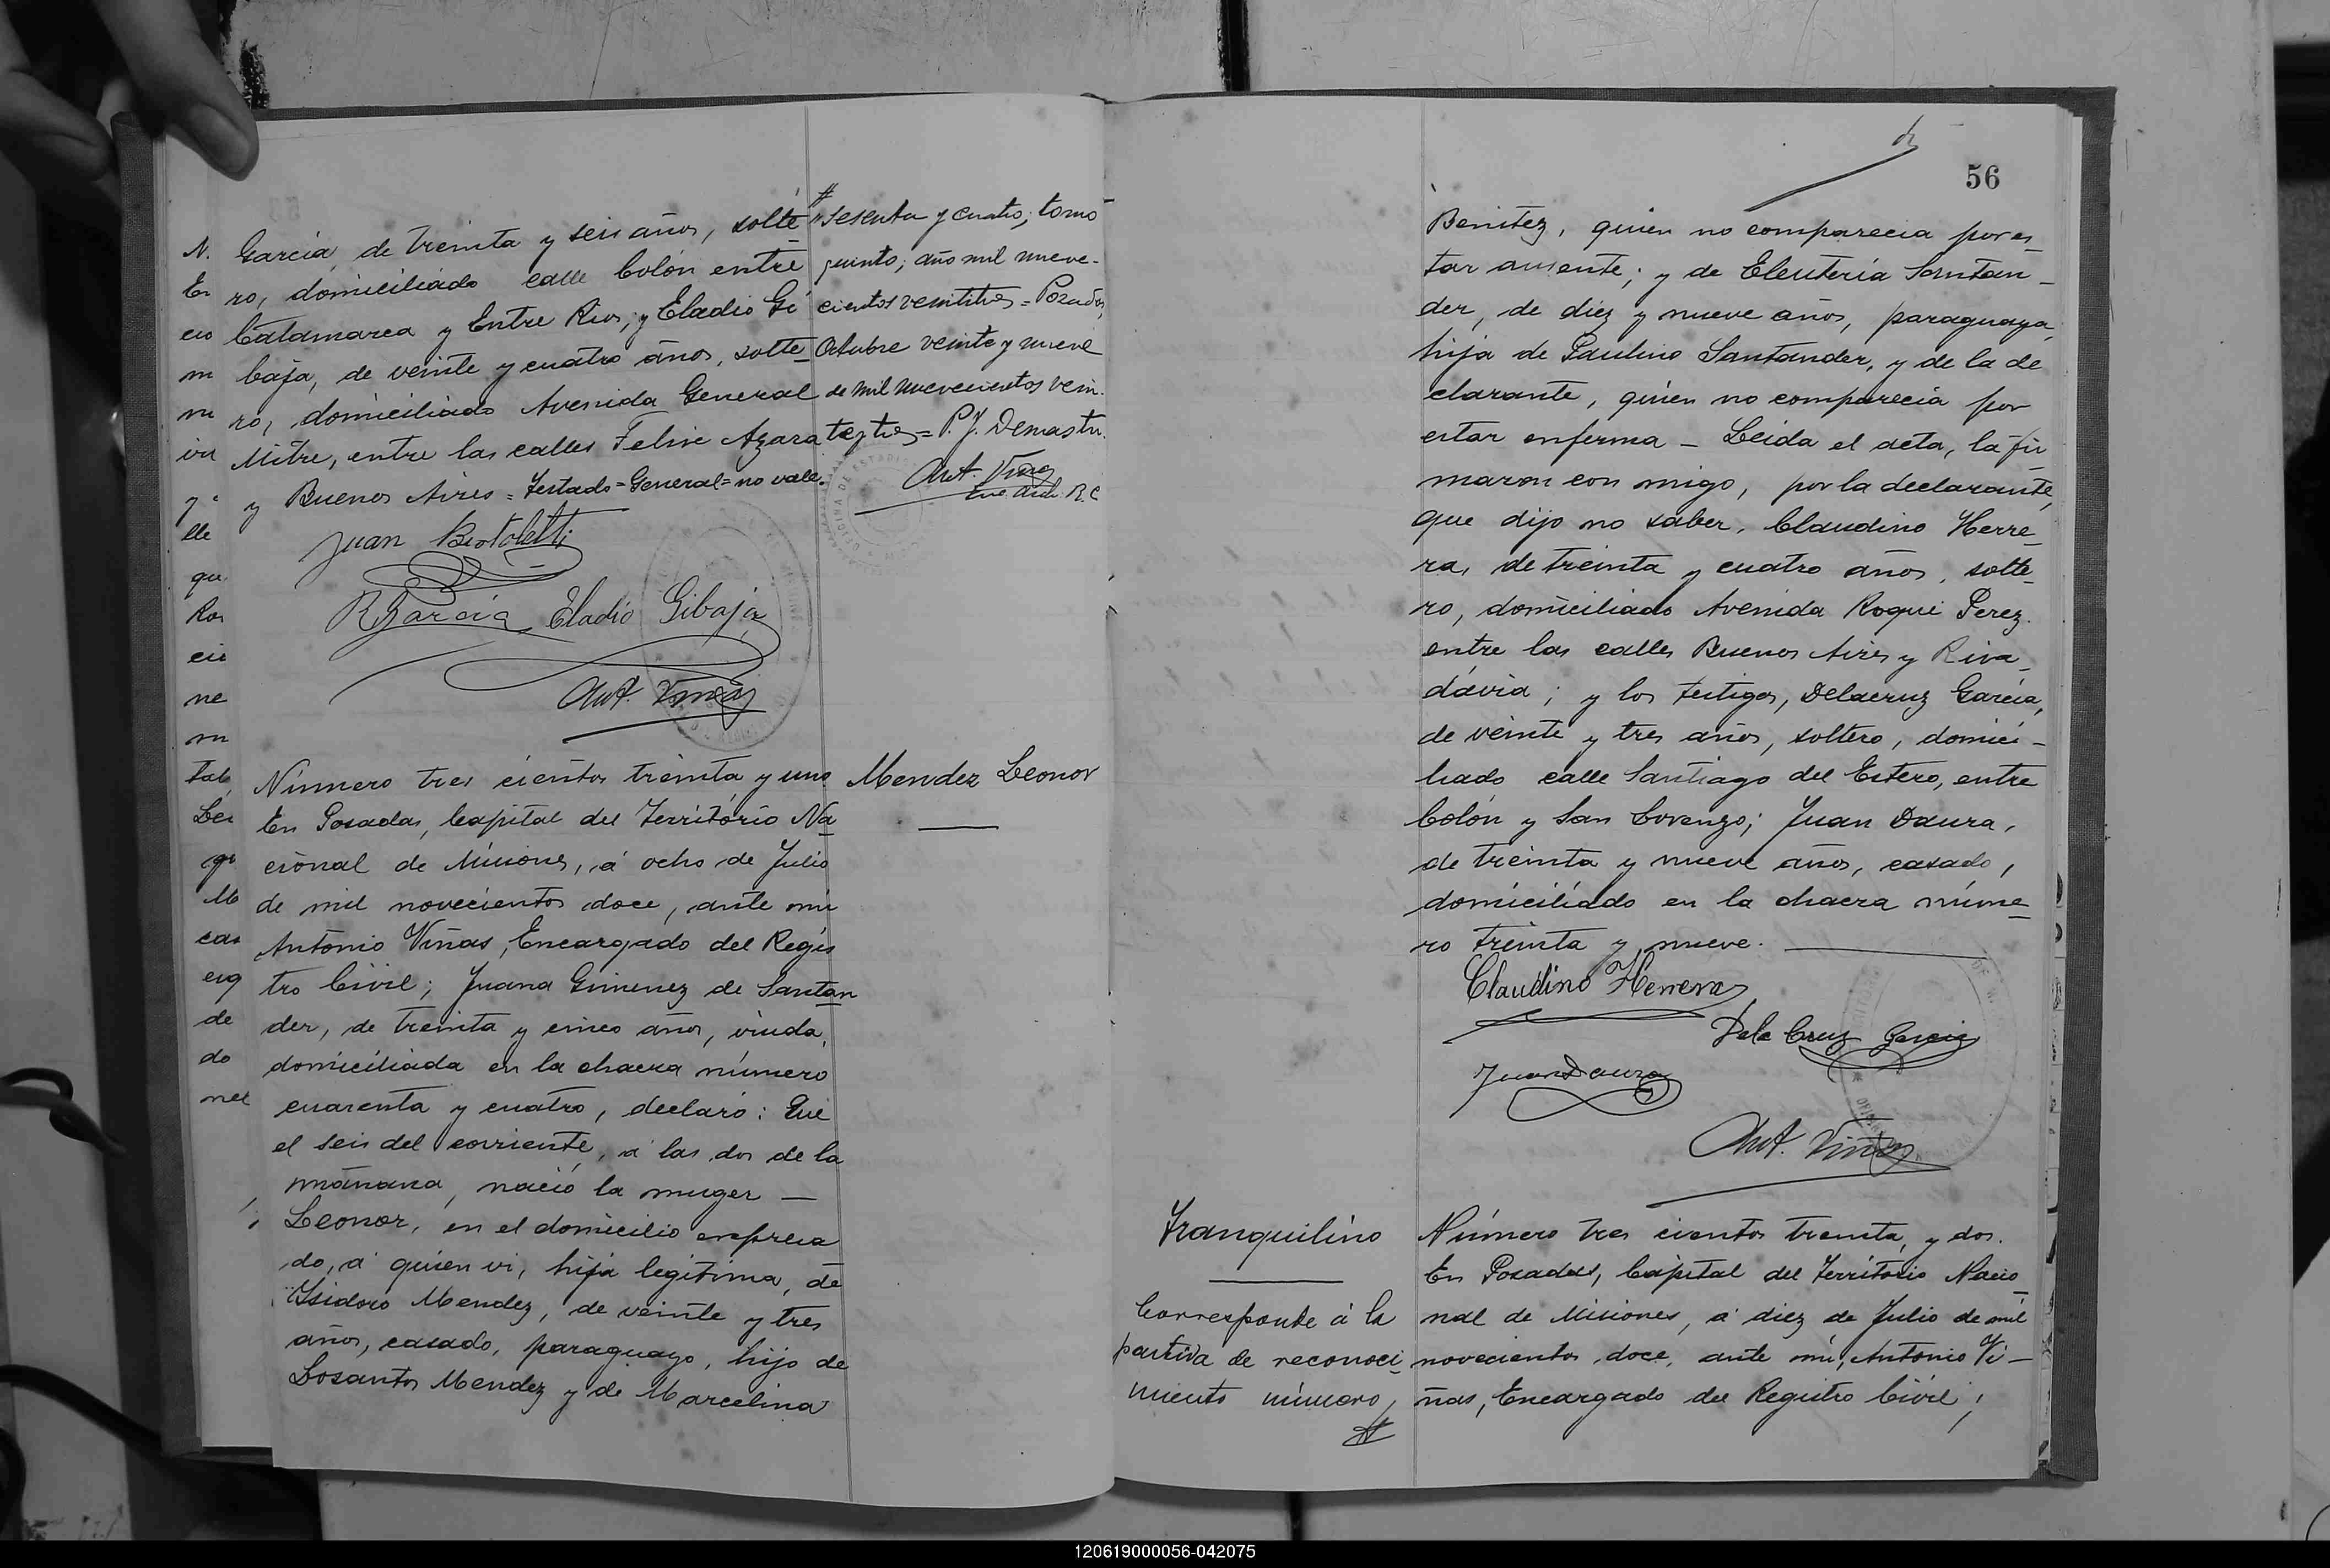 Garcia, de treinta y seis años, solte
ro, domiciliado calle Colón entre
Catamarca y Entre Rios; y Eladio Gi
baja, de veinte y cuatro años, solte
ro, domiciliado Avenida General
Mitre, entre las calles Felix Azara
y Buenos Aires = Testado = General = no vale.
Juan Bertoletti
R Garcia Eladio Gibaja
Ant. Viñas
# "sesenta y cuatro; tomo
quinto; año mil nueve-
cientos veintitres = Posadas,
Octubre veinte y nueve
de mil nuevecientos vein-
te y tres = P. J. Demastu.
Ant. Viñas
R. C
N.
En
cio
m
mi
ivi
lle
qu
Ros
cii
ne
m
tab
Lei
gr
M
cas
eig
de
do
nel
Número tres cientos treinta y uno
En Posadas, Capital del Território Na
cional de Misiones, á ocho de Julio
de mil novecientos doce, ante mi
Antonio Viñas, Encargado del Regis
tro Civil; Juana Gimenez de Santan
der, de treinta y cinco años, viuda,
domiciliada en la chacra número
cuarenta y cuatro, declaró: Que
el seis del corriente, á las dos de la
mañana, nació la muger —
Leonor, en el domicilio expresa
do, á quien vi, hija legitima, de
Ysidoro Mendez, de veinte y tres
años, casado, paraguayo, hijo de
Losantos Mendez y de Marcelina
Mendez Leonor
56
Benitez, quien no comparecia por es
tar ausente; y de Eleuteria Santan-
der, de diez y nueve años, paraguaya,
hija de Paulino Santander, y de la de
clarante, quien no comparecia por
estar enferma — Leida el acta, la fir
maron con migo, por la declarante,
que dijo no saber, Claudino Herre-
ra, de treinta y cuatro años, solte-
ro, domiciliado Avenida Roque Perez
entre las calles Buenos Aires y Riva-
davia; y los testigos, Delacruz Garcia,
de veinte y tres años, soltero, domici-
liado calle Santiago del Estero, entre
Colón y San Lorenzo; Juan Daura,
de treinta y nueve años, casado,
domiciliado en la chacra núme-
ro treinta y nueve.
Claudino Herrera
Dela Cruz Garcia
Juan Daura
Ant. Viñas
Tranquilino
Corresponde á la
partida de reconoci
miento número,
#
Número tres cientos treinta, y dos.
En Posadas, Capital del Território Nacio
nal de Misiones, á diez de Julio de mil
novecientos doce, ante mi, Antonio Vi-
ñas, Encargado del Registro Civil;
120619000056-042075